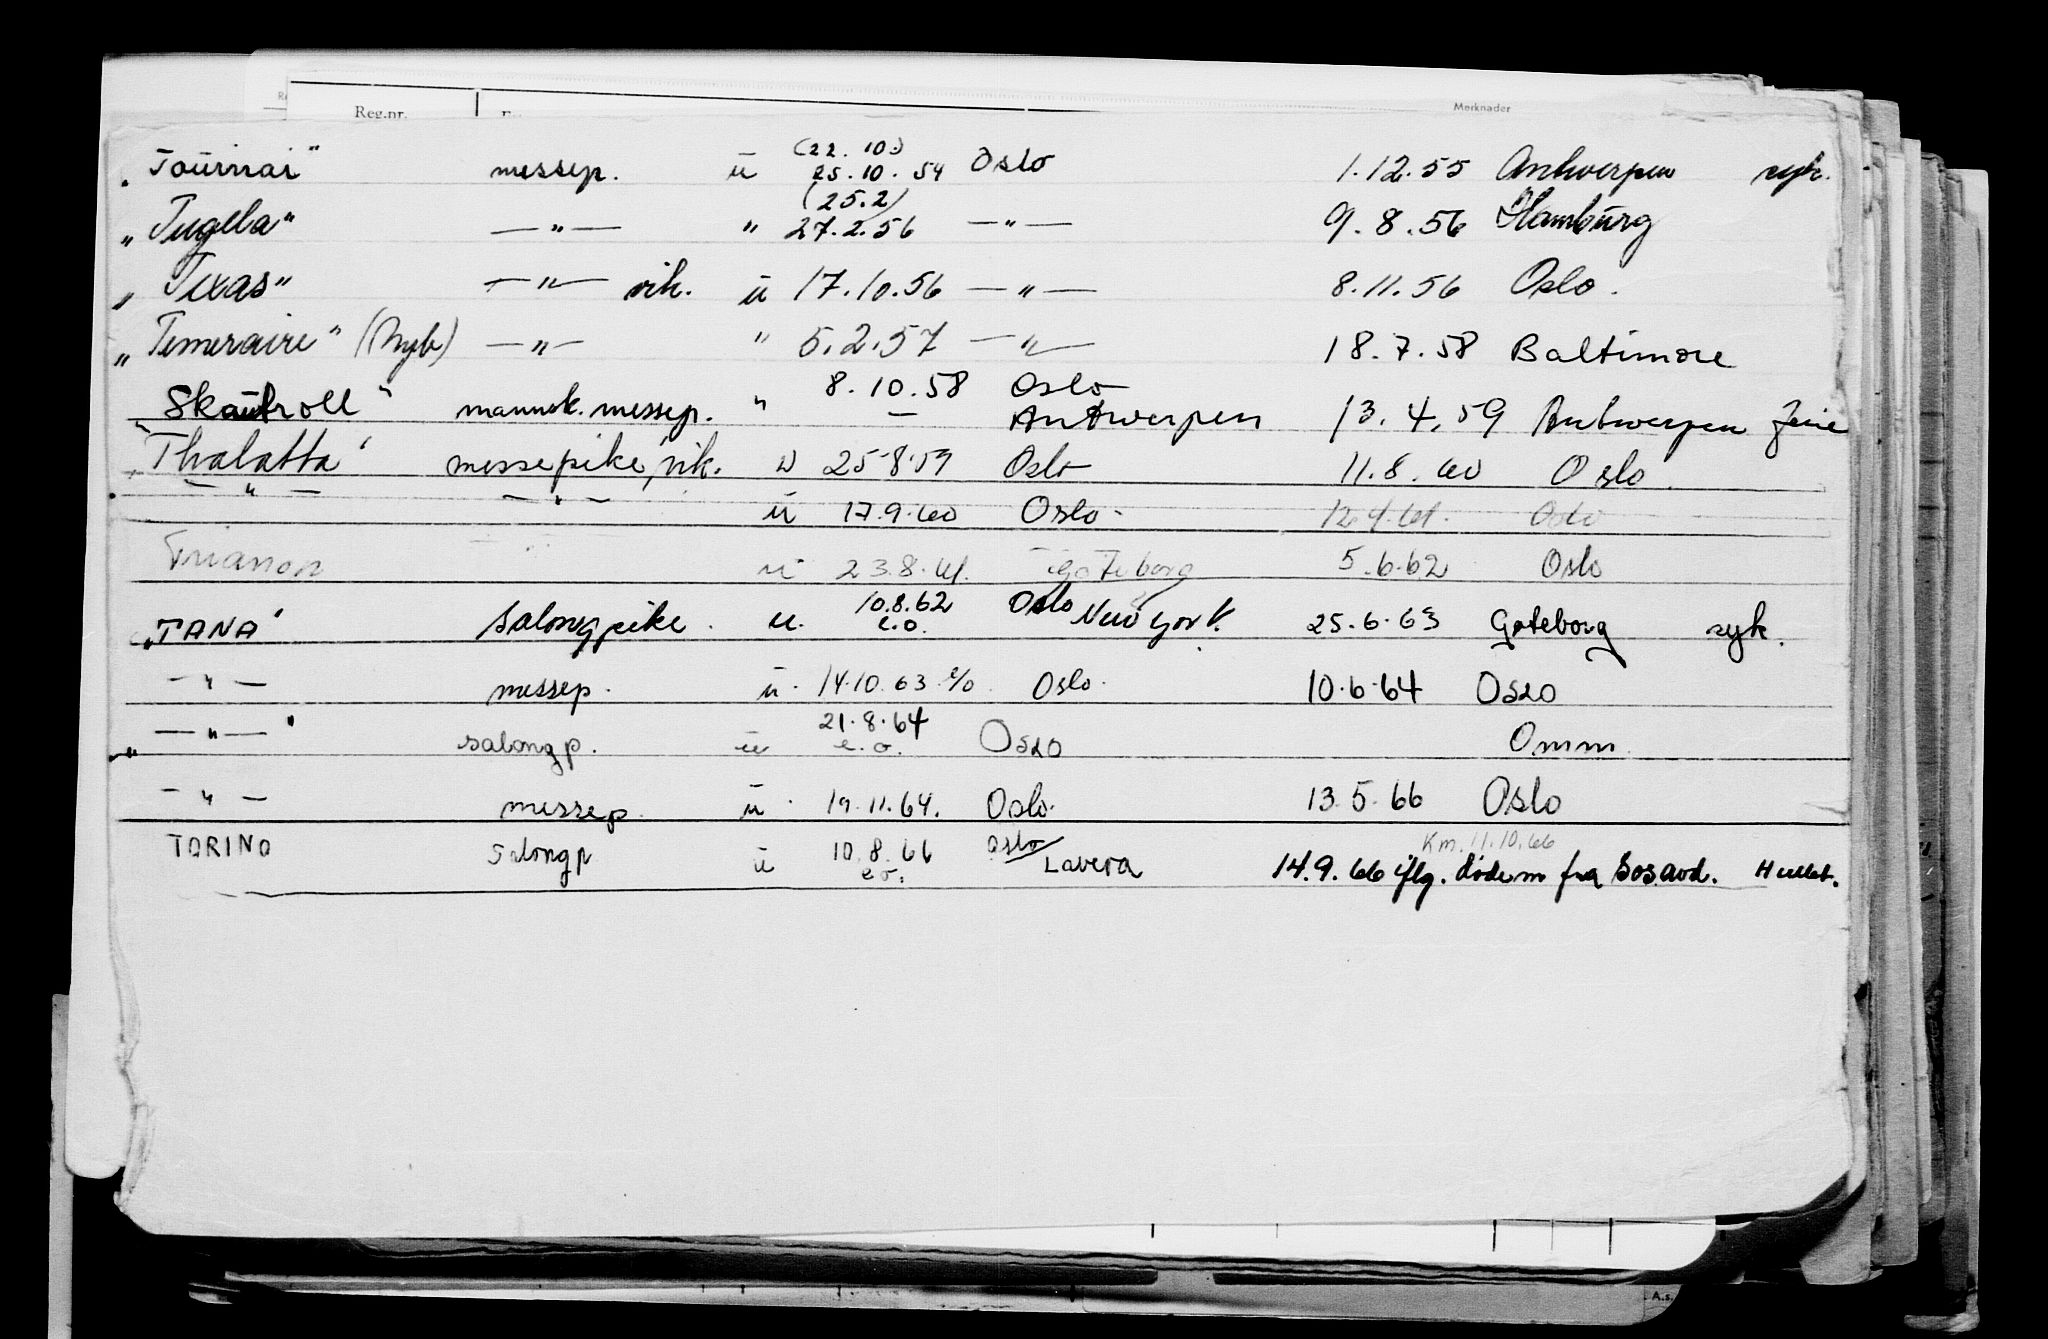 Reg.nr.
Merknader
"Tournai" messep. ü (22.10.) 25.10.54 Oslo 1.12.55 Antwerpen syk.
"Tugela" —"— " (25.2) 27.2.56 —"— 9.8.56 Hamburg
"Texas" —"— vik. ü 17.10.56 —"— 8.11.56 Oslo.
"Temeraire" (Nyb) —"— " 5.2.57 —"— 18.7.58 Baltimore
"Skautroll" mannsk.messep. " 8.10.58 Oslo
— Antwerpen 13.4.59 Antwerpen ferie
"Thalatta" messepike, vik. ü 25-8-59 Oslo 11.8.60 Oslo
—"— —"— ü 17.9.60 Oslo. Oslo
Trianon ü 23.8.61. Göteborg 5.6.62 Oslo
"TANA" salongpike. ü. 10.8.62 e.o. Oslo New York. 25.6.63 Gøteborg syk.
—"— messep. ü. 14.10.63 e/o. Oslo. 10.6.64 Oslo
"—"—" salongp. ü 21.8.64 e.o. Oslo Omm.
—"— messep. ü. 19.11.64. Oslo. 13.5.66 Oslo
TORINO Salongp ü 10.8.66 eo. Oslo/Lavera Km. 11.10.66
14.9.66 iflg. dødsm fra Sosavd. Hullet.
A.s.